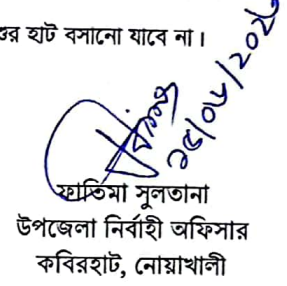 হাট বসানো যাবে না।
ফাতিমা সুলতানা
উপজেলা নির্বাহী অফিসার
কবিরহাট, নোয়াখালী